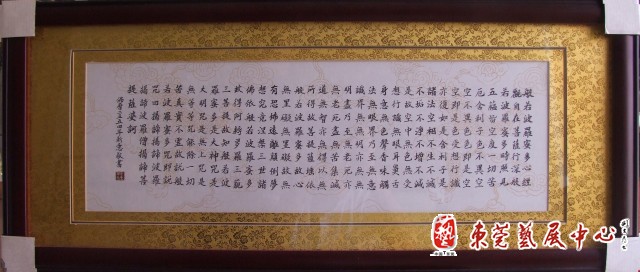 般若波羅蜜多心經
觀自在菩薩行深般
若波羅蜜多時照見
五蘊皆空度一切苦
厄舍利子色不異空
空不異色色即是空
空即是色受想行識
亦復如是舍利子是
諸法空相不生不滅
不垢不淨不增不減
是故空中無色無受
想行識無眼耳鼻舌
身意無色聲香味觸
法無眼界乃至無意
識界無無明亦無無
明盡乃至無老死亦
無老死盡無苦集滅
道無智亦無得以無
所得故菩提薩埵依
般若波羅蜜多故心
無罣礙無罣礙故無
有恐怖遠離顛倒夢
想究竟涅槃三世諸
佛依般若波羅蜜多
故得阿耨多羅三藐
三菩提故知般若波
羅蜜多是大神咒是
大明咒是無上咒是
無等等咒能除一切
苦真實不虛故說般
若波羅蜜多咒即說
咒曰揭諦揭諦波羅
揭諦波羅僧揭諦菩
提薩婆訶
東莞藝展中心